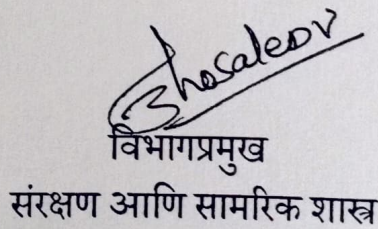 Bhosale DV
विभागप्रमुख
संरक्षण आणि सामरिक शास्त्र